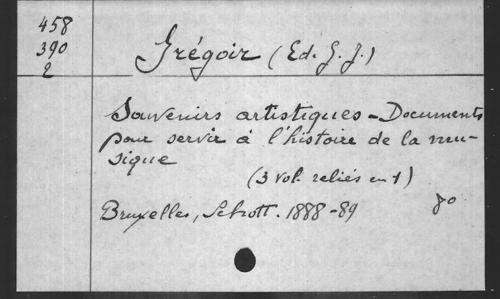 458
390
2
Grégoir (Ed. G. J.)
Souvenirs artistiques - Documents
pour servir à l'histoire de la mu-
sique
(3 vol. reliés en 1)
Bruxelles, Schott. 1888-89 8o